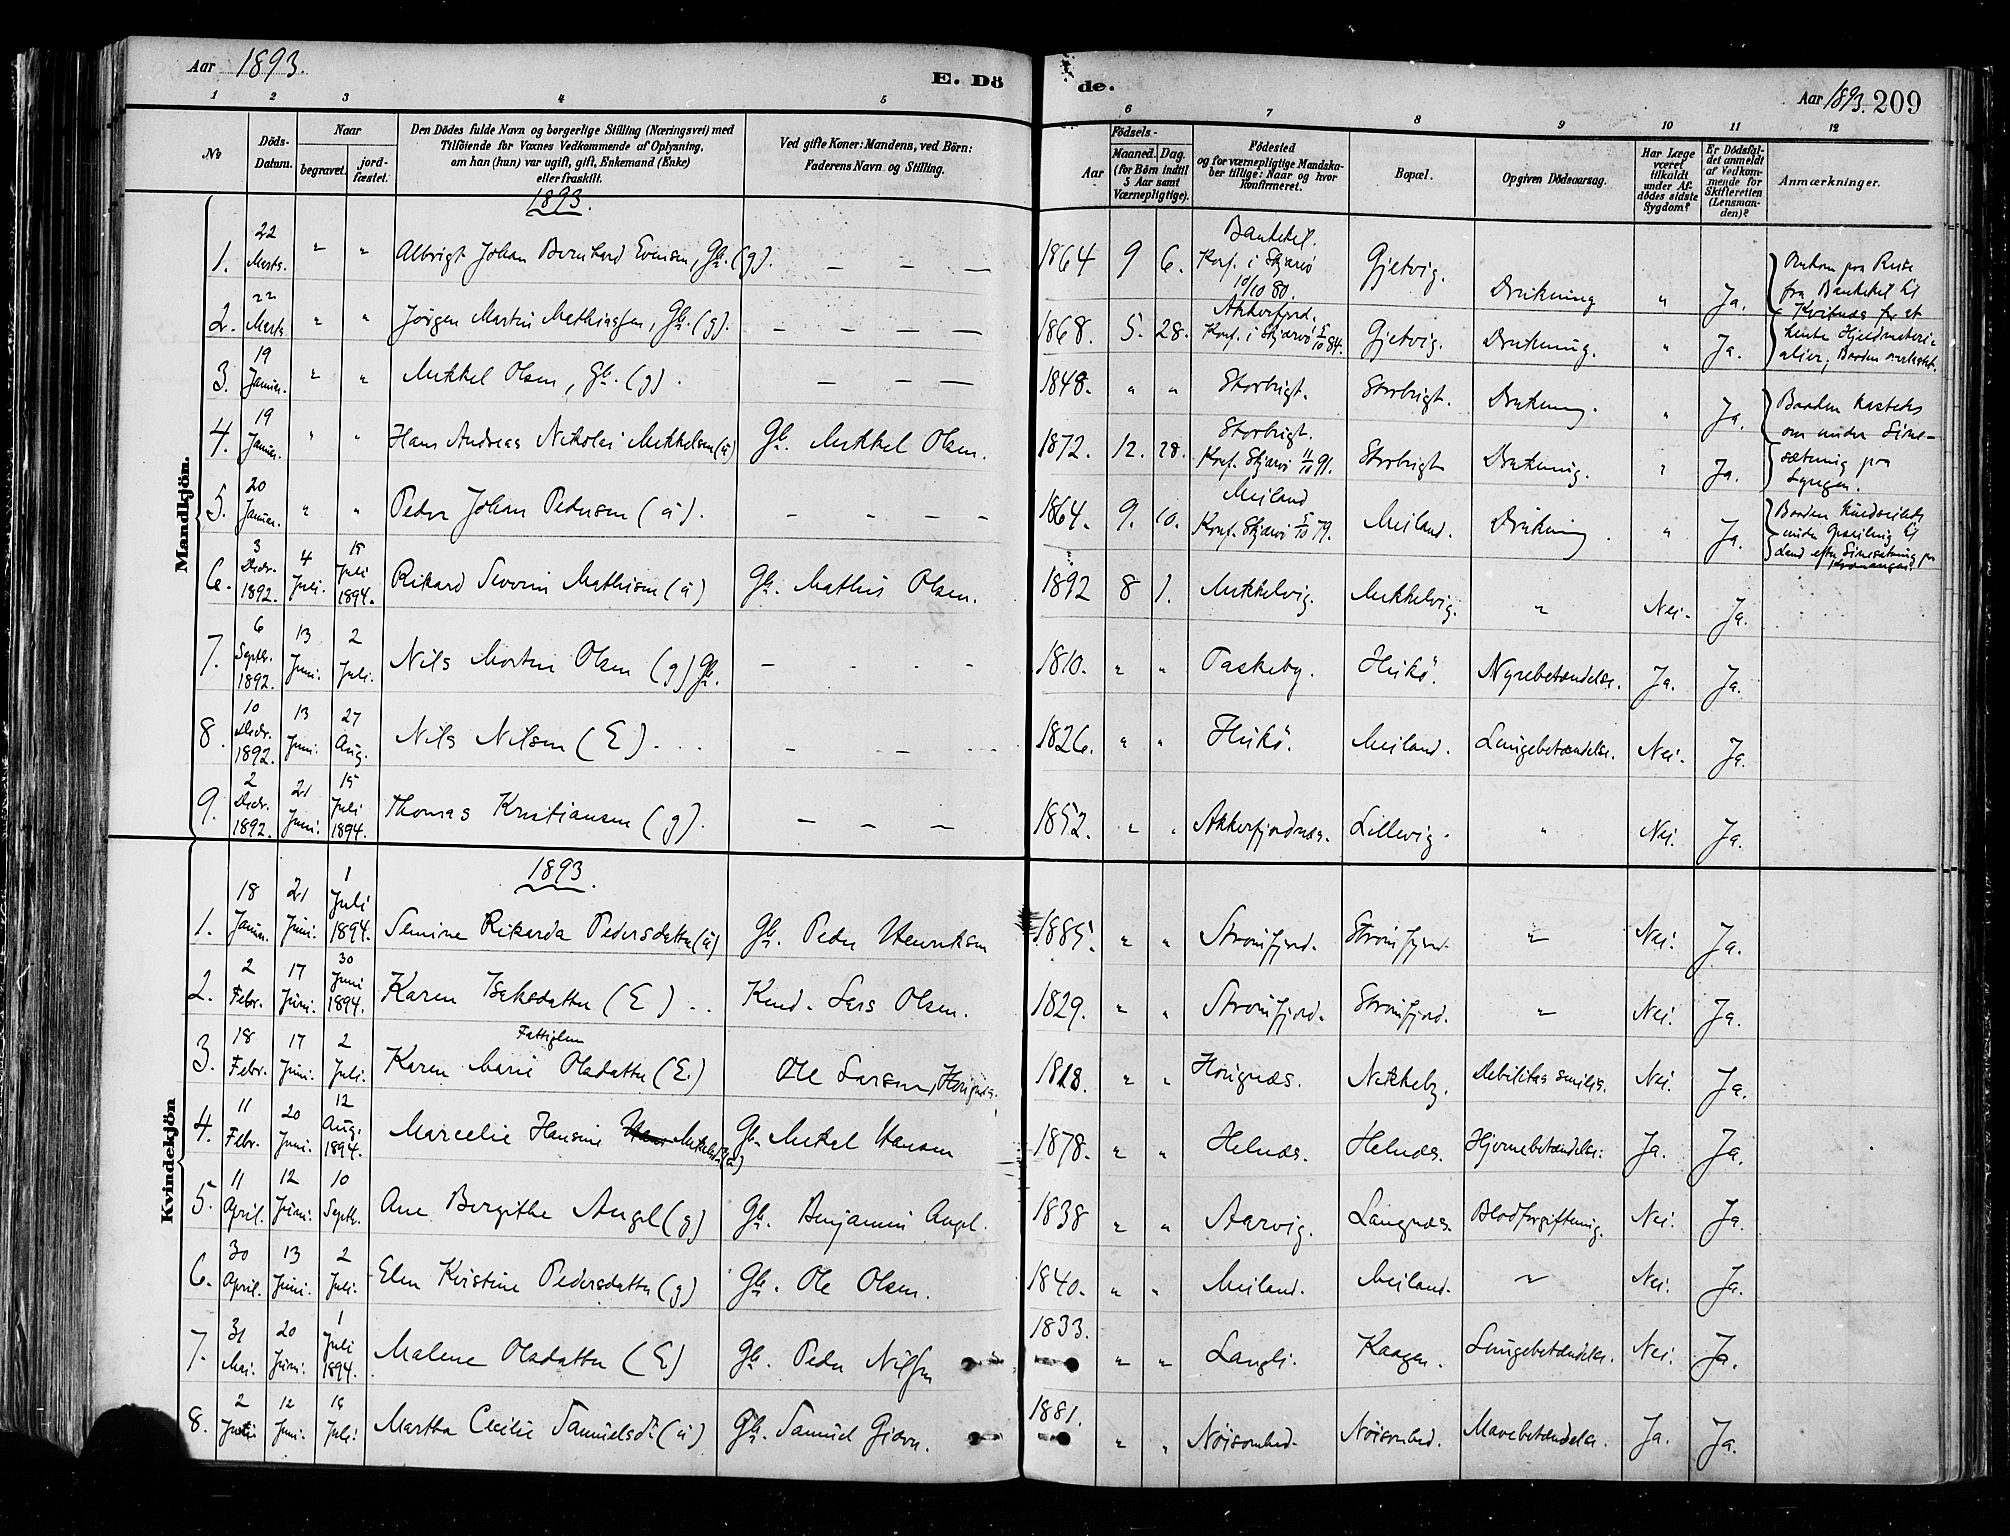 Aar 1893.
E. Døde.
Aar 1893. 209
1 2 3 4 5 6 7 8 9 10 11 12
No
Døds-Datum.
Naar
begravet. jordfæstet.
Den Dødes fulde Navn og borgerlige Stilling (Næringsvei) med
Tilføiende for Voxnes Vedkommende af Oplysning,
om han (hun) var ugift, gift, Enkemand (Enke)
eller fraskilt.
Ved gifte Koner: Mandens, ved Børn:
Faderens Navn og Stilling.
Fødsels-
Aar
Maaned. Dag.
(for Børn indtil
5 Aar samt
Værnepligtige).
Fødested
og for værnepligtige Mandskaber
tillige: Naar og hvor
konfirmeret.
Bopæl.
Opgiven Dødsaarsag.
Har Læge
været
tilkaldt
under Afdødes
sidste
Sygdom?
Er Dødsfaldet
anmeldt
af Vedkommende
for
Skifteretten
(Lensmanden)?
Anmærkninger.
Mandkjøn.
1893.
1. 22 Marts. " " Albrigt Johan Bernhard Evensen, Gb. (g). — — — 1864 9 6. Bankekel. Konf. i Skjærvø 10/10 80. Gjetvig. Drukning " Ja.
2. 22 Marts " " Jørgen Martin Mathiassen, Gb. (g). — — — 1868. 5. 28. Akkerfjord. Konf. i Skjærvø 5/10 84. Gjetvig. Drukning. " Ja.
Omkom paa Reise
fra Bankekel til
Kvitnæs for at
hente Hjeldmaterialier;
Baaden overlastet.
3. 19 Januar. " " Mikkel Olsen, Gb. (g). — — — 1848. " " Storbugt. Storbugt. Drukning. " Ja.
4. 19 Januar. " " Hans Andreas Nikolai Mikkelsen (u) Gb. Mikkel Olsen. 1872. 12. 28. Storbugt. Konf. Skjærvø 11/10 91. Storbugt Drukning. " Ja.
Baaden kastedes
om under Linesætning
paa
Lyngen.
5. 20 Januar. " " Peder Johan Pedersen (u). — — — — 1864. 9. 10. Meiland Konf. Skjærvø 5/10 79. Meiland. Drukning. " Ja.
Baaden
under Opseiling til
Land efter Linesætning paa
Kvænangen.
6. 3 Decbr. 1892. 4 Juli. 15 Juli 1894. Rikard Severin Mathisen (u) Gb. Mathis Olsen. 1892 8 1. Mikkelvig. Mikkelvig. " Nei. Ja.
7. 6 Septbr. 1892. 13 Juni. 2 Juli. Nils Morten Olsen (g) Gb. — — — — 1810. " " Taskeby. Hukø. Nyrebetændelse. Ja. Ja.
8. 10 Decbr. 1892. 13 Juni. 27 Aug. Nils Nilsen (E). . . — — — 1826. " " Hukø. Meiland. Lungebetændelse. Nei. Ja.
9. 2 Decbr. 1892. 21 Juni. 15 Juli 1894. Thomas Kristiansen (g). — — — 1852. " " Akkerfjordnæs. Lillevig. " Nei. Ja.
Kvindekjøn
1893.
1. 18 Januar. 21 Juni. 1 Juli 1894. Semine Rikarda Pedersdatter (u) Gb. Peder Henriksen 1885. " " Strømfjord. Strømfjord. " Nei. Ja.
2. 2 Febr. 17 Juni. 30 Juni 1894. Karen Isaksdatter (E) . . Kend. Lars Olsen. 1829. " " Strømfjord. Strømfjord. " Nei. Ja.
3. 18 Febr. 17 Juni. 2 Juli. Fattiglem Karen Marie Olsdatter (E.) Ole Larsen, Horignæs. 1818. " " Horignæs. Nikkeby. Debilitas senilis. Nei. Ja.
4. 11 Febr. 20 Juni. 12 Aug. 1894. Marcelie Hansine Mikkelsd. (u) Gb. Mikel Hansen 1878. " " Helnæs. Helnæs. Hjernebetændelse. Ja. Ja.
5. 11 April. 12 Juni. 10 Septbr. Ane Bergithe Angel (g) Gb. Benjamin Angel. 1838 " " Aarvig. Langnæs. Blodforgiftning. Nei. Ja.
6. 30 April. 13 Juni. 2 Juli. Elen Kristine Pedersdatter (g) Gb. Ole Olsen. 1840. " " Meiland. Meiland. " Nei. Ja.
7. 31 Mai. 20 Juni. 1 Juli 1894. Malene Olsdatter (E) Gb. Peder Nilssen 1833. " " Langli. Kaagen. Lungebetændelse. Nei. Ja.
8. 2 Juni 12 Juni. Juli. Martha Cecilie Samuelsd. (u) Gb. Samuel Giæver. 1881. " " Nøisomhed. Nøisomhed. Mavebetændelse. Ja. Ja.